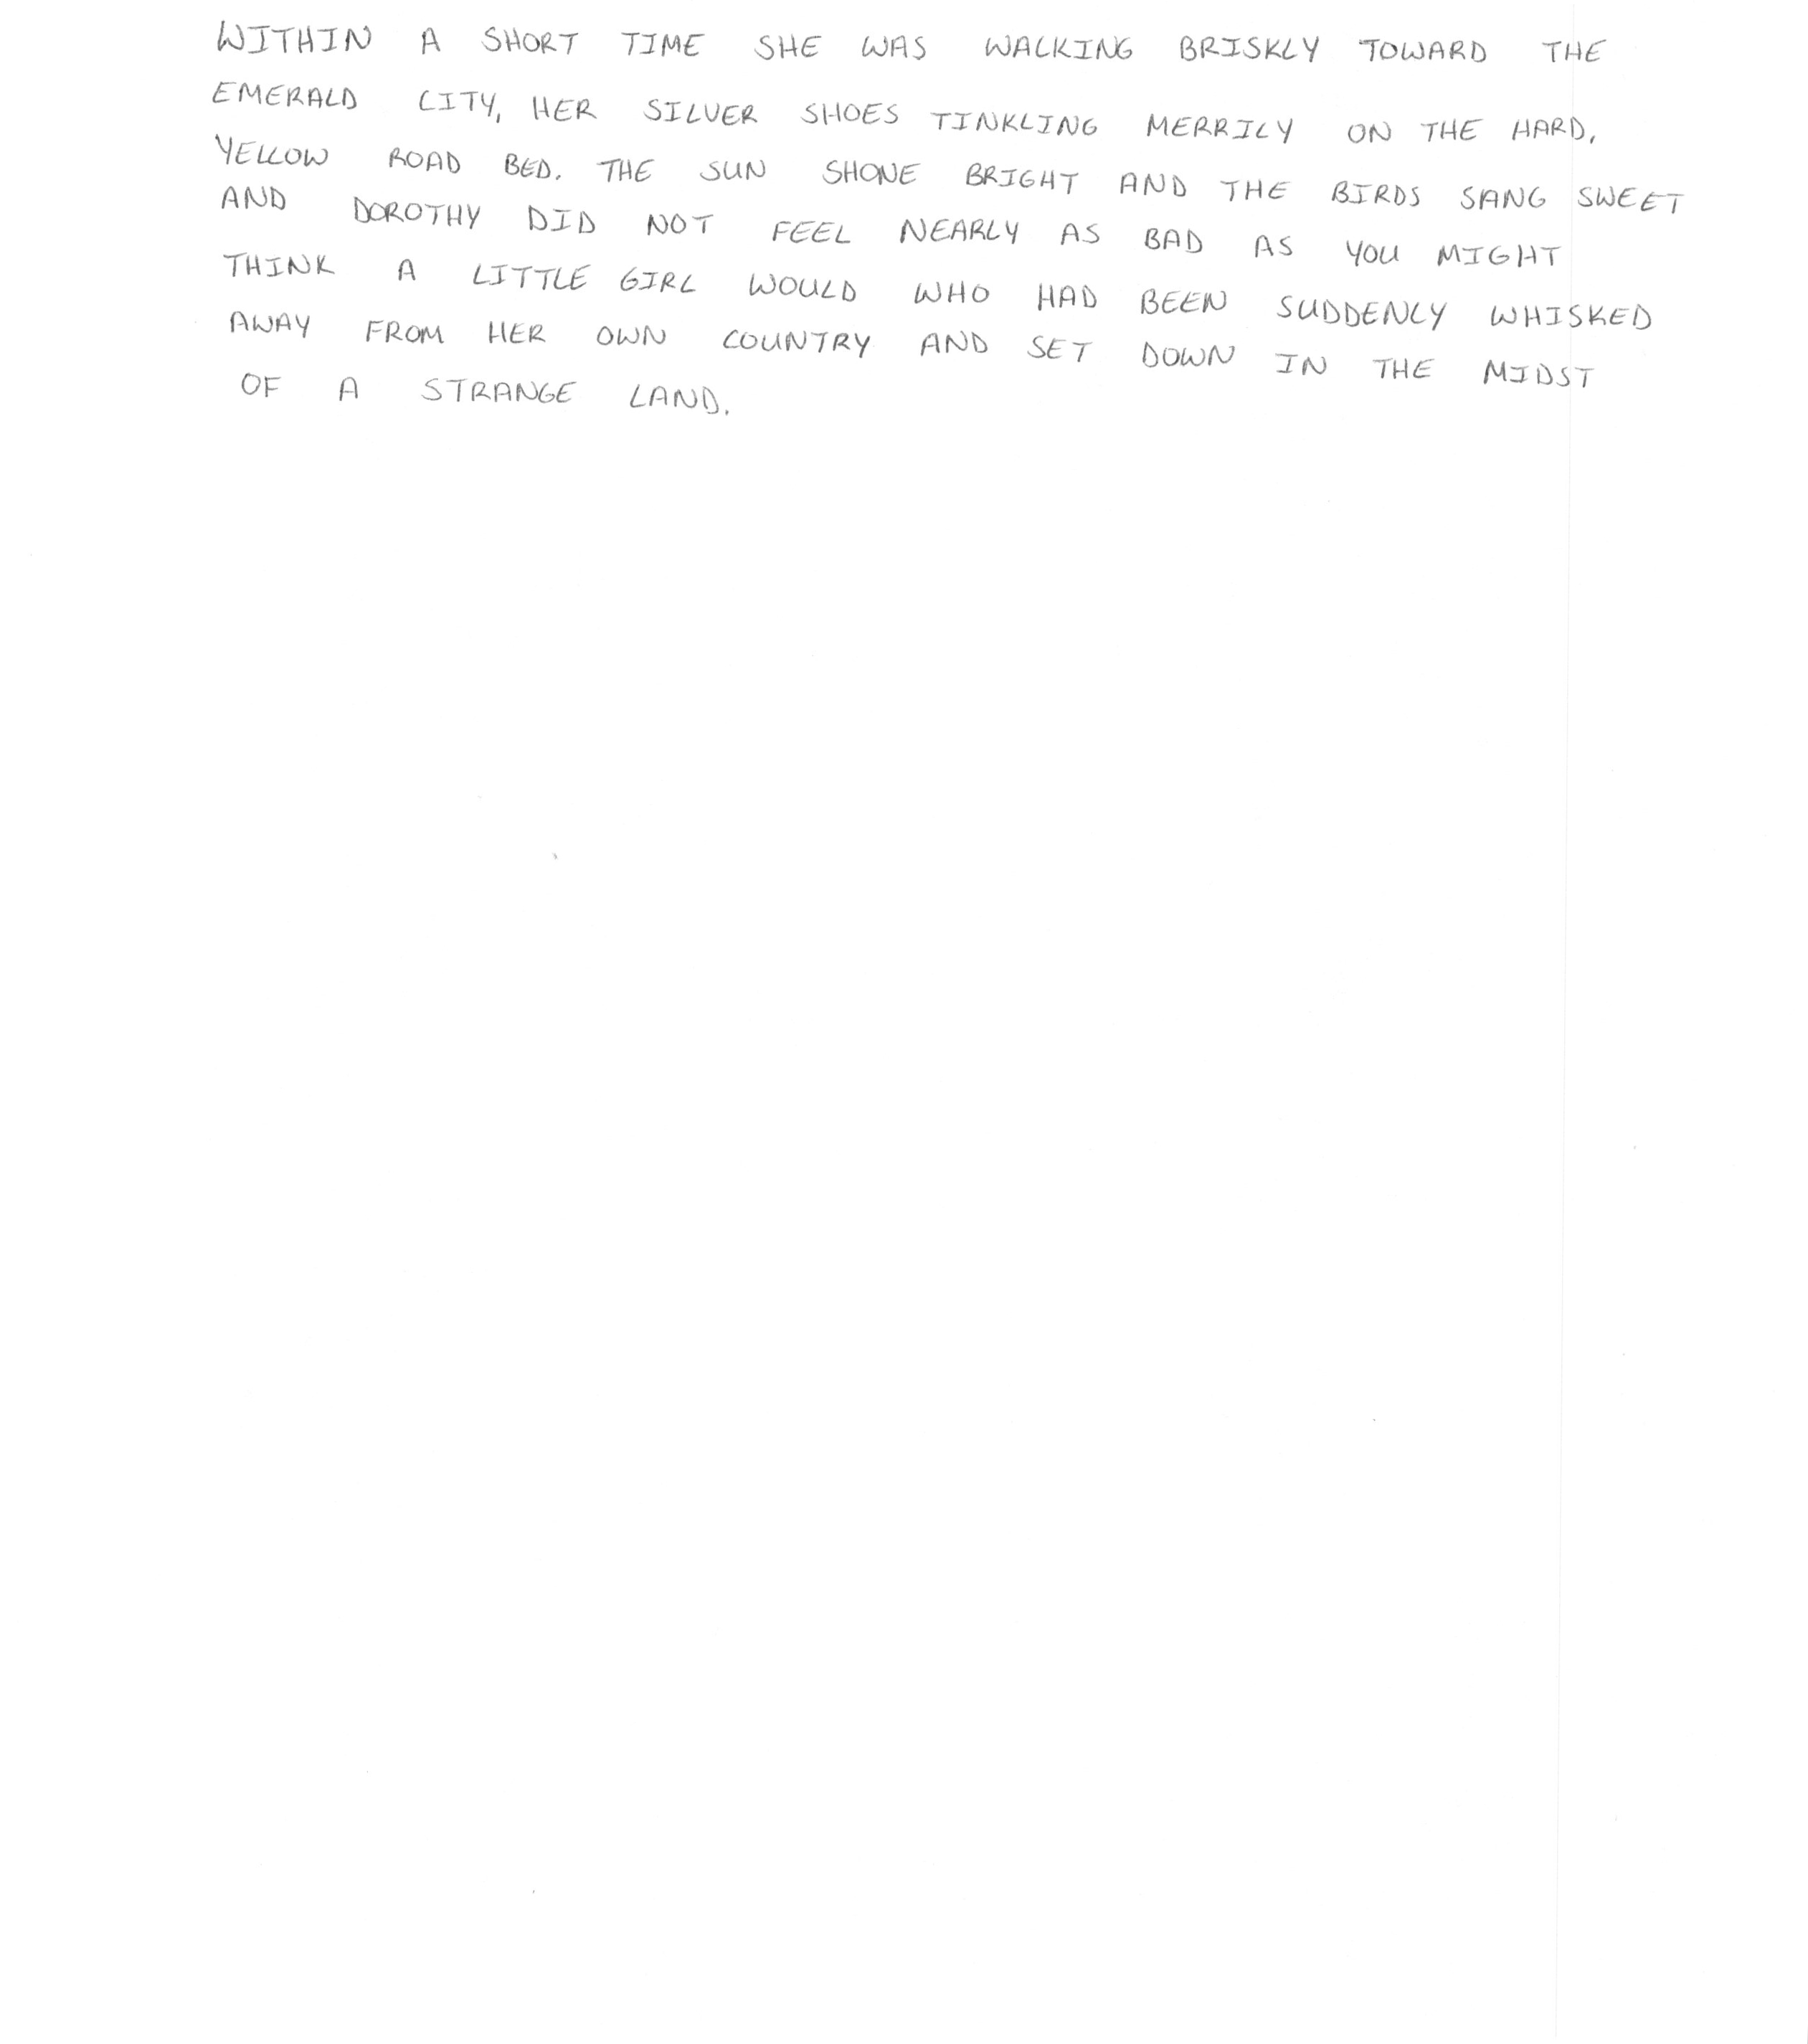 WITHIN A SHORT TIME SHE WAS WALKING BRISKLY TOWARD THE
EMERALD CITY, HER SILVER SHOES TINKLING MERRILY ON THE HARD,
YELLOW ROAD BED. THE SUN SHONE BRIGHT AND THE BIRDS SANG SWEET
AND DOROTHY DID NOT FEEL NEARLY AS BAD AS YOU MIGHT
THINK A LITTLE GIRL WOULD WHO HAD BEEN SUDDENLY WHISKED
AWAY FROM HER OWN COUNTRY AND SET DOWN IN THE MIDST
OF A STRANGE LAND.